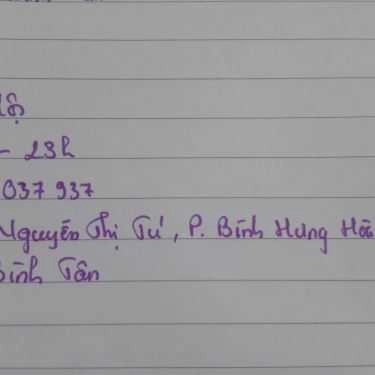 – 23h
037 937
Nguyễn Thị Tú, P. Bình Hưng Hòa
Bình Tân